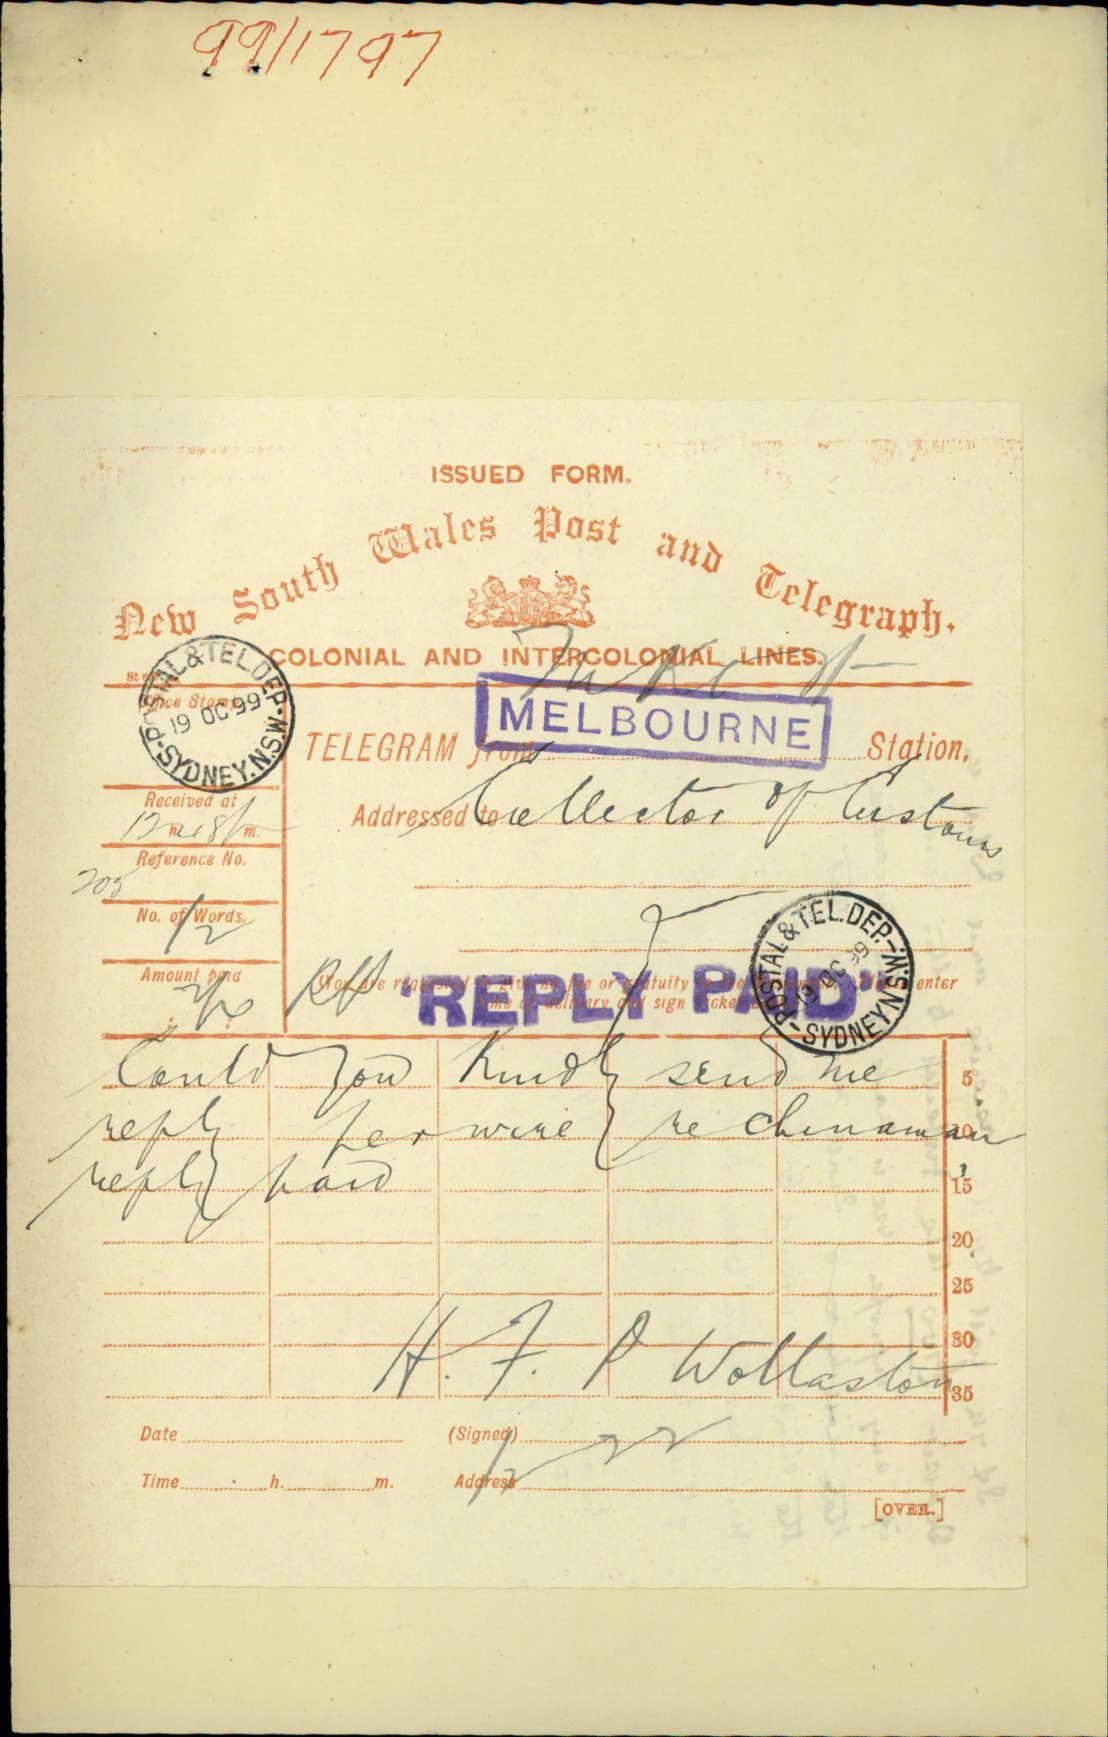 99/1797
ISSUED FORM.
New South Wales Post and Telegraph.
COLONIAL AND INTERCOLONIAL LINES.
POSTAL & TEL. DEP. - N.S.W. - SYDNEY.
19 OC 99
Office Stamp
MELBOURNE
TELEGRAM from Station,
Received at
m.
Addressed to Collector of Customs
Reference No.
203
No. of Words.
12
Amount paid
2/6
RP
"REPLY PAID"
POSTAL & TEL. DEP. - N.S.W. - SYDNEY
19 OC 99
You are requested to give no fee or gratuity to the enter
time of delivery and sign ticket
Could you kindly send me 5
reply per wire re chinaman 10
reply paid 15
20
25
30
H. F. P Wollaston 35
Date (Signed)
Time h. m. Address
[OVER.]